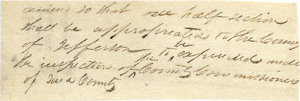 so that one half section
shall be appropriated to the County
of Jefferson to be expended under
the inspection of County Commissioners
of said County